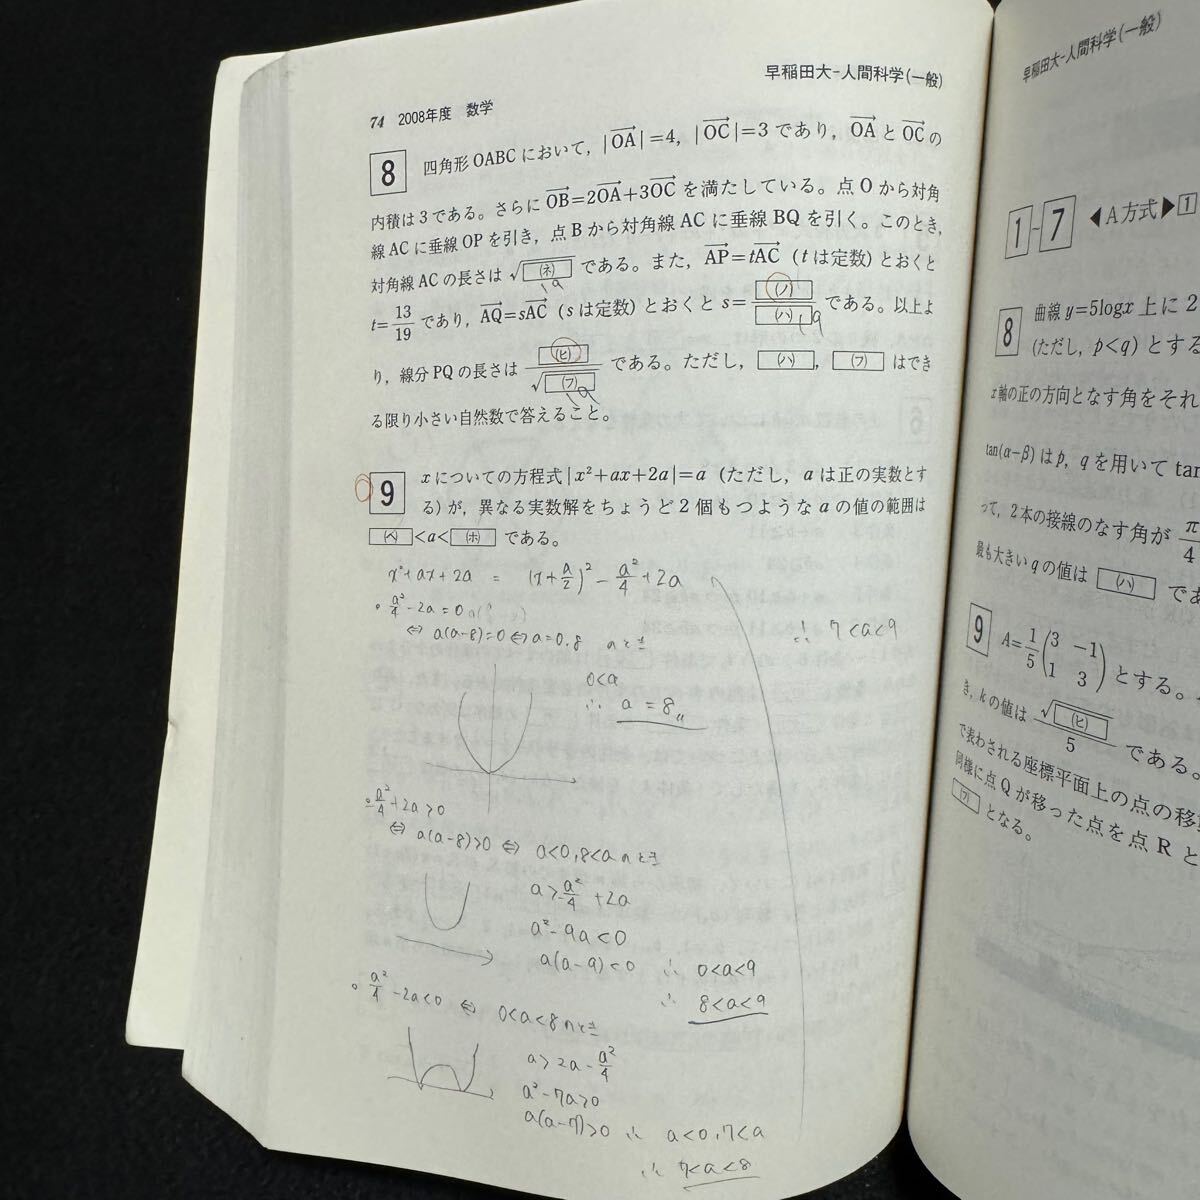 早稲田大-人間科学(一般)
74 2008年度 数学
8 四角形OABCにおいて，|OA→|=4，|OC→|=3であり，OA→とOC→の
内積は3である。さらにOB→=2OA→+3OC→を満たしている。点Oから対角
線ACに垂線OPを引き，点Bから対角線ACに垂線BQを引く。このとき，
対角線ACの長さは√(ネ)である。また，AP→=tAC→（tは定数）とおくと
t=13/19であり，AQ→=sAC→（sは定数）とおくとs=(ノ)/(ハ)である。以上よ
り，線分PQの長さは(ヒ)/√(フ)である。ただし，(ハ)，(フ)はでき
る限り小さい自然数で答えること。
9 xについての方程式|x²+ax+2a|=a（ただし，aは正の実数とす
る）が，異なる実数解をちょうど2個もつようなaの値の範囲は
(ヘ)<a<(ホ)である。
x²+ax+2a = (x+a/2)² - a²/4 + 2a
a²/4 - 2a = 0
⇔ a(a-8)=0 ⇔ a=0,8 のとき
0<a
∴ a = 8
∴ 7<a<9
-a²/4+2a>0
⇔ a(a-8)>0 ⇔ a<0, 8<a のとき
a>-a²/4+2a
a²-9a<0
a(a-9)<0 ∴ 0<a<9
∴ 8<a<9
a²/4-2a<0 ⇔ 0<a<8のとき
a>2a-a²/4
a²-7a>0
a(a-7)>0 ∴ a<0, 7<a
∴ 7<a<8
早稲田大-人間科学(一般)
1~7 ◀A方式▶1
8 曲線y=5logx上に2
（ただし，p<q）とする
x軸の正の方向となす角をそれ
tan(α-β)はp，qを用いてtan
って，2本の接線のなす角がπ/4
最も大きいqの値は(ハ)であ
9 A=1/5(3 -1 1 3)とする。
き，kの値は√(ヒ)/5である。
で表わされる座標平面上の点の移
同様に点Qが移った点を点Rと
(フ)となる。